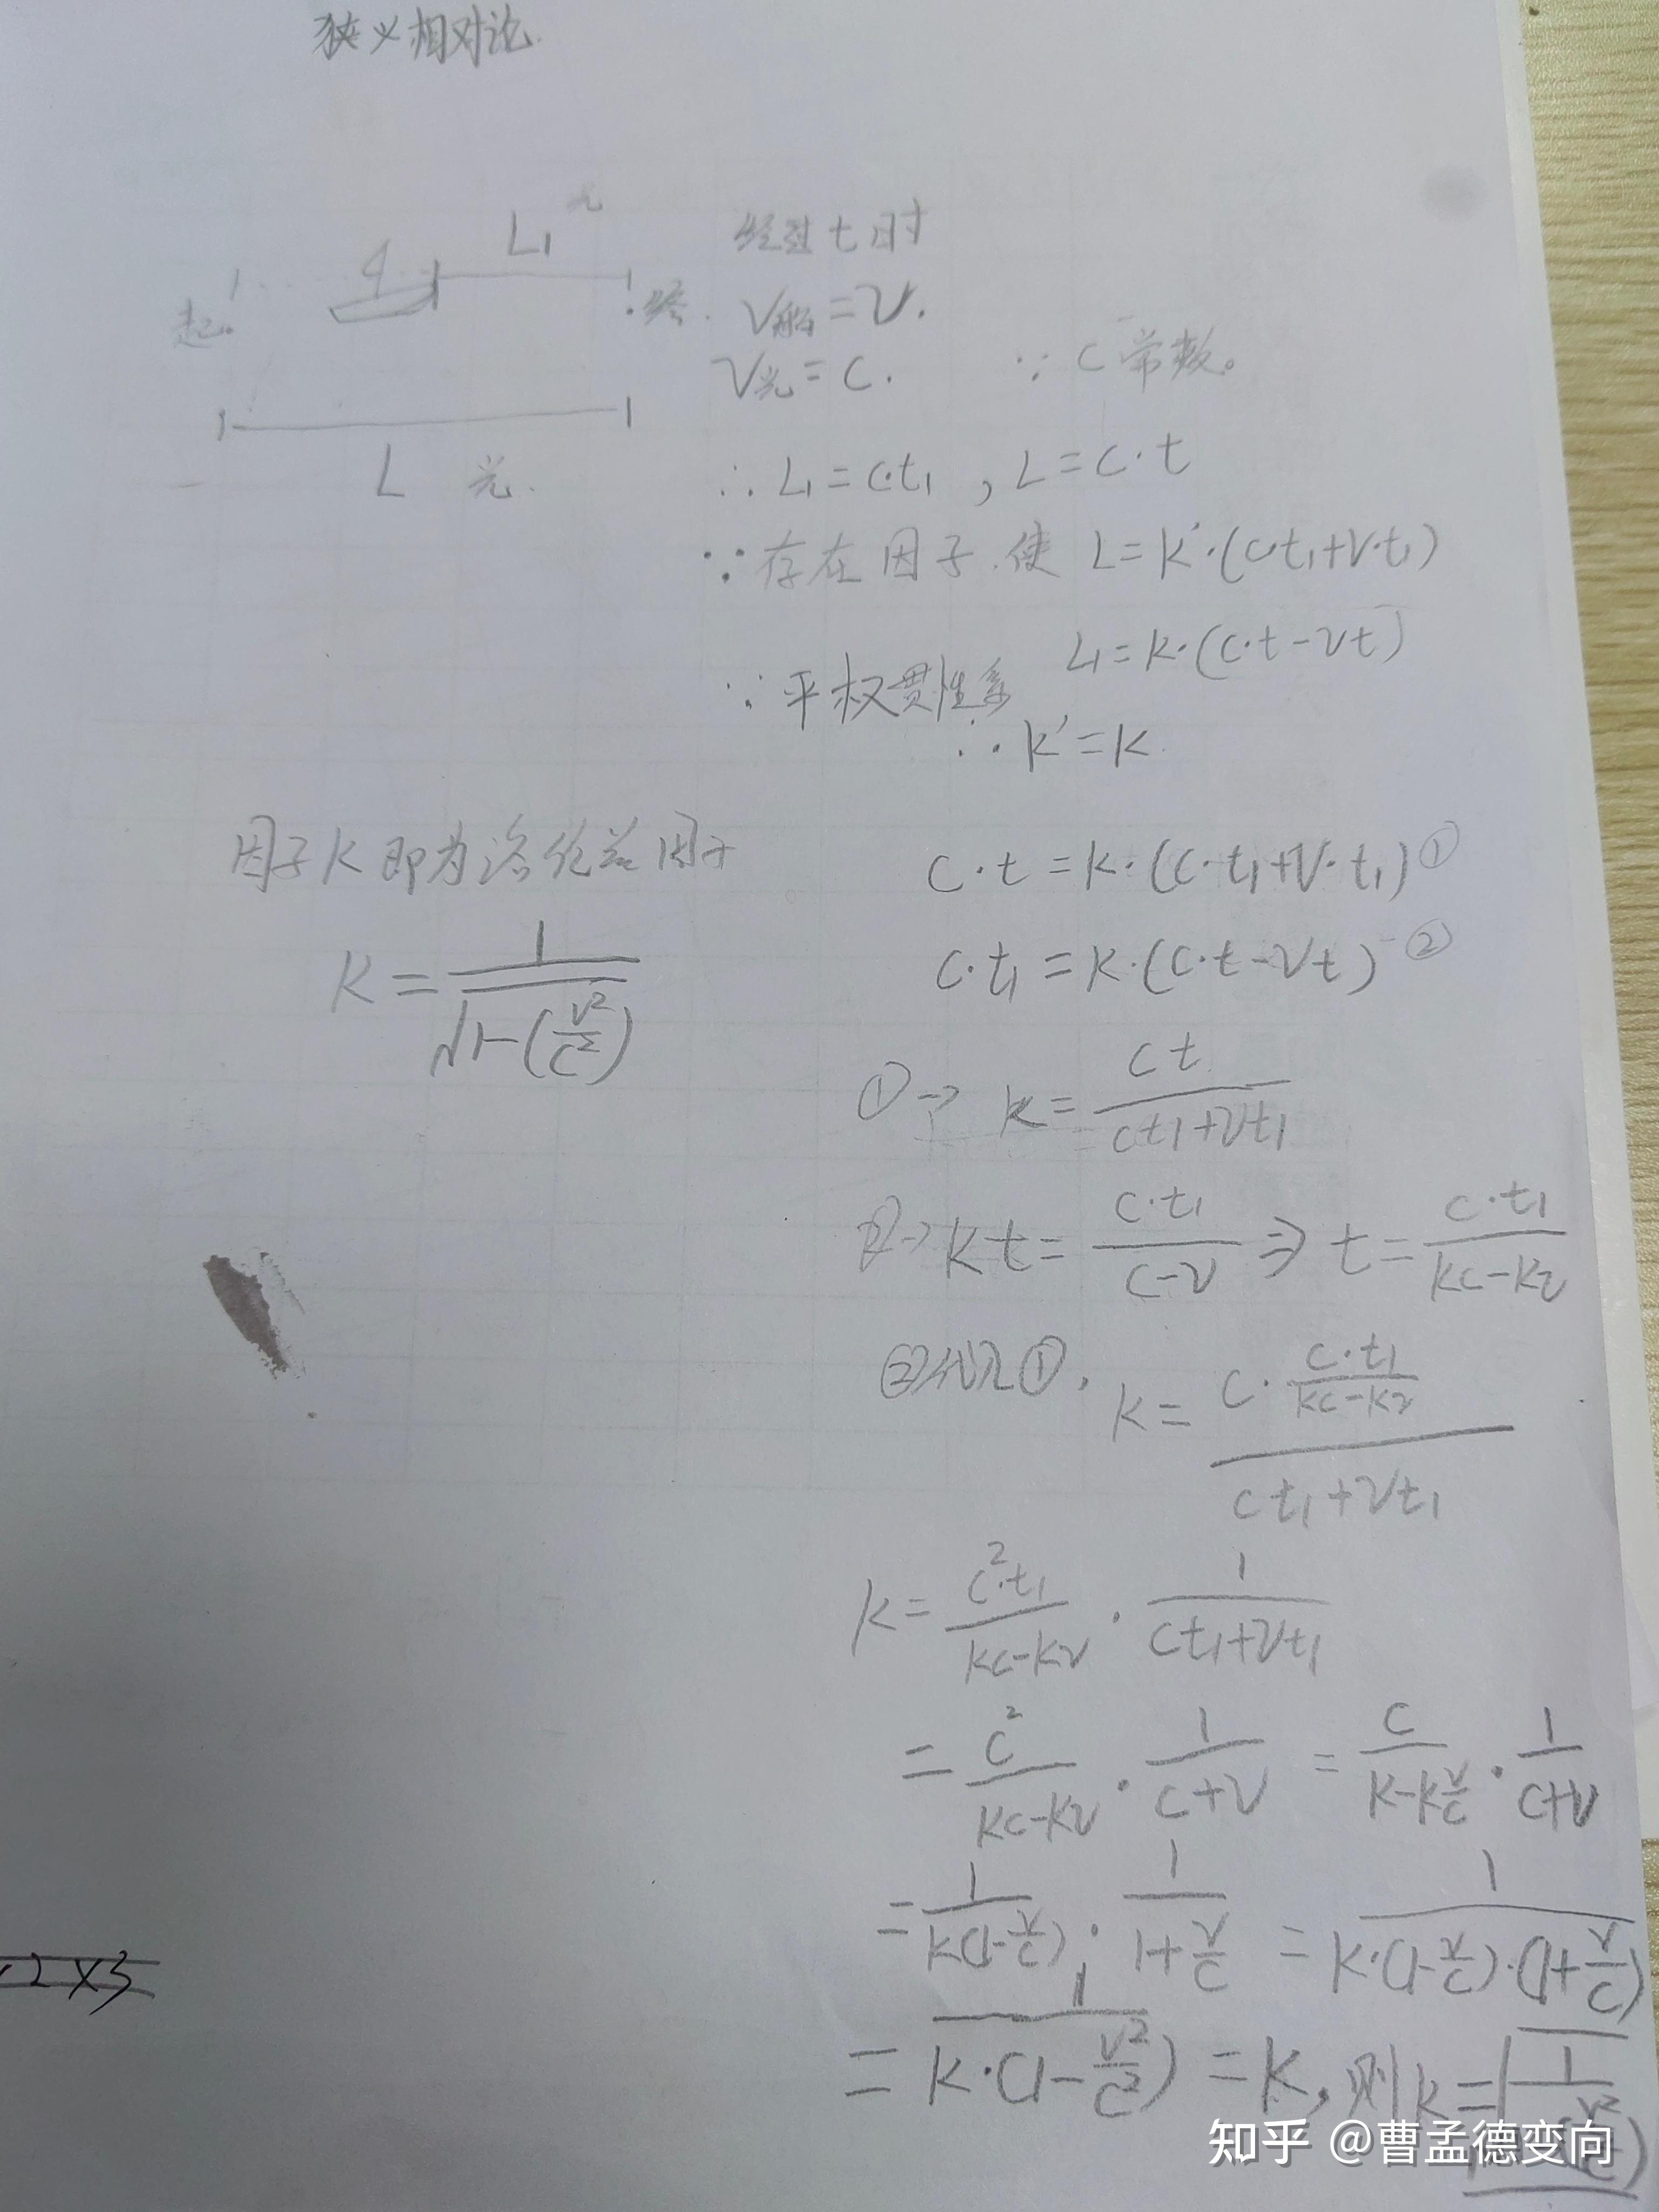 狭义相对论.
L₁ 光
起. 终.
L 光.
经过t时
V船=v.
V光=c. ∵c常数。
∴L₁=c·t₁, L=c·t
∵存在因子.使 L=k'·(ct₁+v·t₁)
L₁=k·(c·t-vt)
∵平权贯性系
∴k'=k.
因子k即为洛伦兹因子
k=1/√(1-(v²/c²))
c·t=k·(c·t₁+v·t₁) ①
c·t₁=k·(c·t-vt) ②
①→ k=ct/(ct₁+vt₁)
②→kt=c·t₁/(c-v) ⇒ t=c·t₁/(kc-kv)
②代入①, k=(c·c·t₁/(kc-kv))/(ct₁+vt₁)
k=c²·t₁/(kc-kv)·1/(ct₁+vt₁)
=c²/(kc-kv)·1/(c+v)=c/(k-kv/c)·1/(c+v)
=1/(k(1-v/c))·1/(1+v/c)=1/(k·(1-v/c)·(1+v/c))
=1/(k·(1-v²/c²))=k,则k=√(1/
2×3
知乎 @曹孟德变向